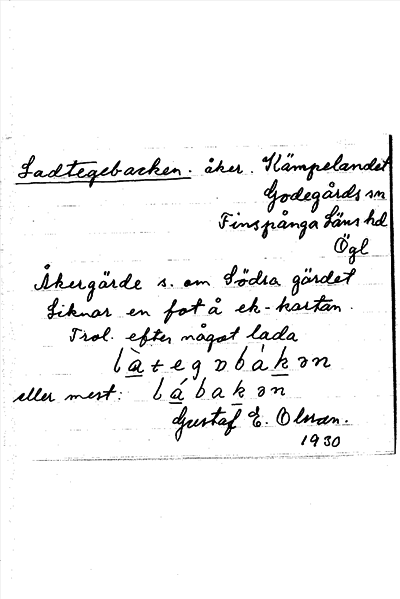 Ladtegebacken. åker. Kämpelandet
Godegårds sn
Finspånga Läns hd
Ögl
Åkergärde s. om Södra gärdet
Liknar en fot å ek-kartan.
Trol. efter något lada
làtegɒbàkən
eller mest: lábakən
Gustaf E. Olsson.
1930